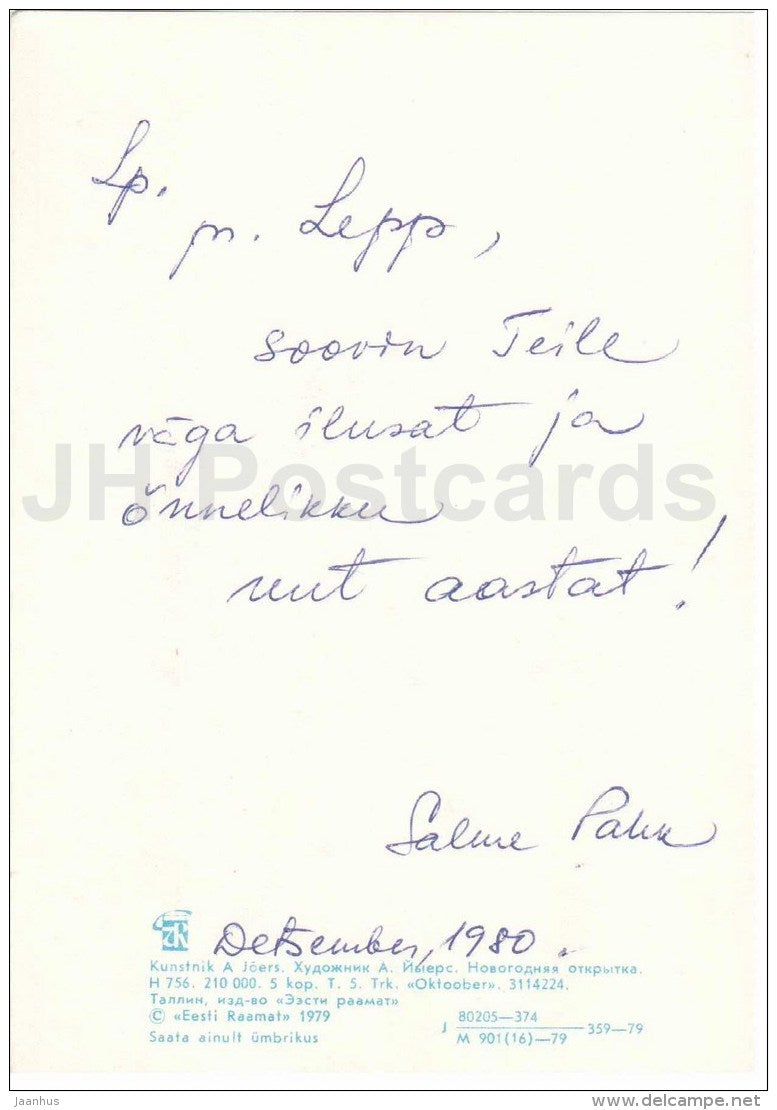 Lp.
pr. Lepp,
soovin Teile
väga ilusat ja
õnnelikku
uut aastat!
JH Postcards
Salme Pakk
Detsember, 1980.
Kunstnik A Jõers. Художник А. Йыерс. Новогодняя открытка.
H 756. 210 000. 5 kop. T. 5. Trk. «Oktoober». 3114224.
Таллин, изд-во «Ээсти раамат»
© «Eesti Raamat» 1979
Saata ainult ümbrikus
J 80205—374
M 901(16)—79
359—79
Jaanhus
delcampe.net